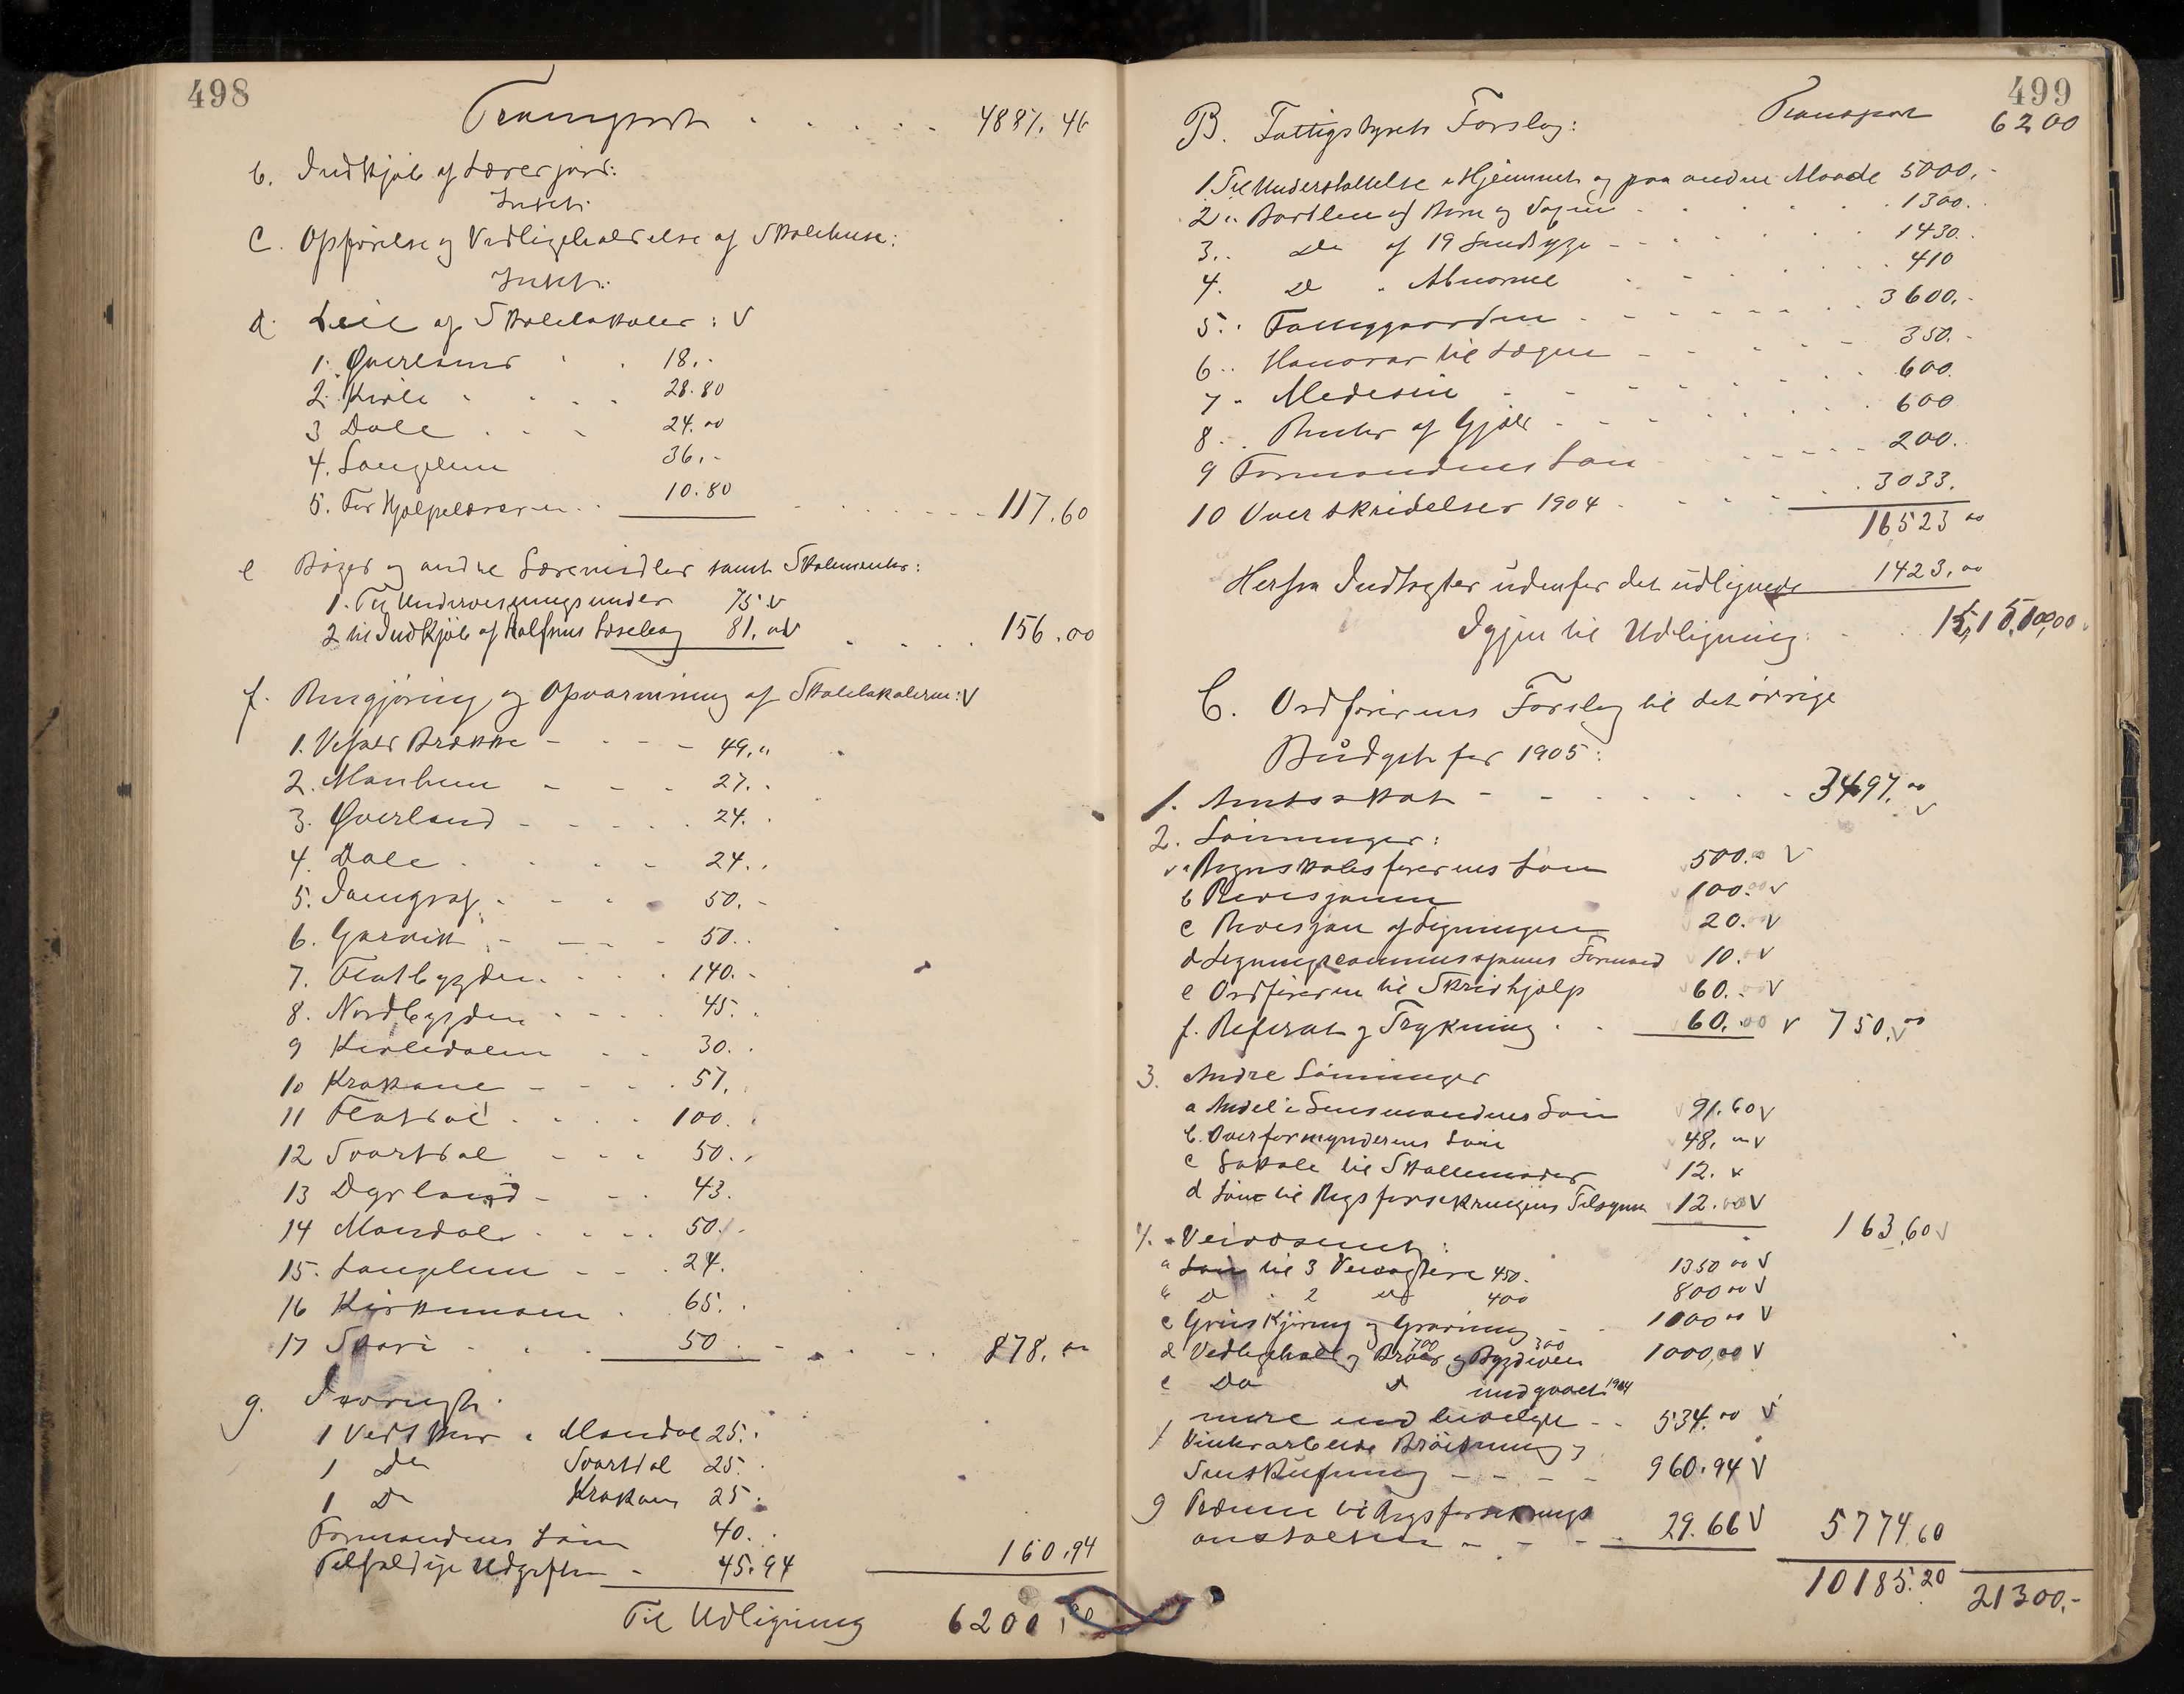 498
Transport . . . . . 4887.46
b. Indkjøb af Lærerjord:
Intet.
C. Opførelse og Vedligeholdelse af Skolehuse:
Intet.
d. Leie af Skolelokaler: V
1. Qverland . . 18.-
2. Kivle . . . . 28.80
3 Dale . . . 24.00
4. Langelim 36.-
5. For Hjælpelæreren . . 10.80 . . . . . . 117.60
e Bøger og andre Læremidler samt Skoleinventar:
1. Til Undervisningsmidler 75 V
2 til Indkjøb af Rolfsens Læsebog 81.00 V . . . . 156.00
f. Rengjøring og Opvarmning af Skolelokalerne: V
1. Vefald Brække - - - - 49.-
2. Manheim - - - 27.-
3. Qverland - - - - - 24.
4. Dale . . . - 24.
5. Jamgrav - - - 50.-
6. Garvik - - - - 50..
7. Flatbygden . . . 140.-
8. Nordbygden - - - - 45.
9 Kivledalen . . . 30.
10 Krokane - - - . 57.
11 Flatdal . . . . 100.
12 Svartdal - - - 50.
13 Dyrland - - . 43.
14 Mandal - . . . 50.-
15. Langelim - - . 24.
16 Kirkemoen . 65.
17 Skori - . . 50 . . . . . . 878.00
g. Iøvrigt.
1 Vedskur i Mandal 25.
1 Do Svartdal 25.
1 Do Krokane 25.
Formandens Løn 40.
Tilfældige Udgifter - 45.94 160.94
Til Udligning 6200.00
499
Transport 6200
B. Fattigstyrets Forslag:
1. Til Understøttelse i Hjemmet og paa anden Maade 5000.-
2 " Bortleie af Børn og Voxne . . . . 1300.
3. " Do af 19 Sindssyge - - - . . . 1430.
4. Do " Abnorme . . . . 410
5. " Fattiggaarden . - - - - - . 3600.-
6. " Honorar til Lægen - - - . - - 350.-
7 " Medesin - - - - - . . 600.
8. " Renter af Gjæld - - - . . . . 600
9 Formandens Løn - - - - - - 200.
10 Overskridelser 1904 . . . . . . 3033.
16523 00
Herfra Indtægter udenfor det udlignede 1423.00
Igjen til Udligning: . . 15,100.00
C. Ordførerens Forslag til det øvrige
Budget for 1905:
1. Amtsskat - - - . . . . . 3497.00 V
2. Lønninger:
a Regnskabsførerens Løn 500.00 V
b Revisjonen 100.00 V
c Revisjon af Ligningen 20.00 V
d Ligningscommissjonens Formand 10.00 V
e Ordføreren til Skrivhjælp 60.- V
f. Referat og Trykning . . 60.00 V 750.00 V
3. Andre Lønninger
a Andel i Lensmandens Løn 91.60 V
b. Overformynderens Løn 48.00 V
c Lokale til Skattemøder 12. V
d Løn til Brandforsikringens Tilsynsm 12.00 V
163.60 V
4. Veivæsenet:
a Løn til 3 Veivogtere 450. 1350 00 V
b Do " 2 Do 400 800 00 V
c Gruskjøring og Gravning - . . 1000 00 V
d Vedligehold af Broer 700 og Bygdeveie 300 1000.00 V
e Do Do medgaaet 1904
mere end bevilget - . 534.00 V
f Vinterarbeide Brøitning og
Sneskufning - - - - 960.94 V
g Præmie til
anstalten - - - - 29.66 V 5774.60
10185.20
21300.-